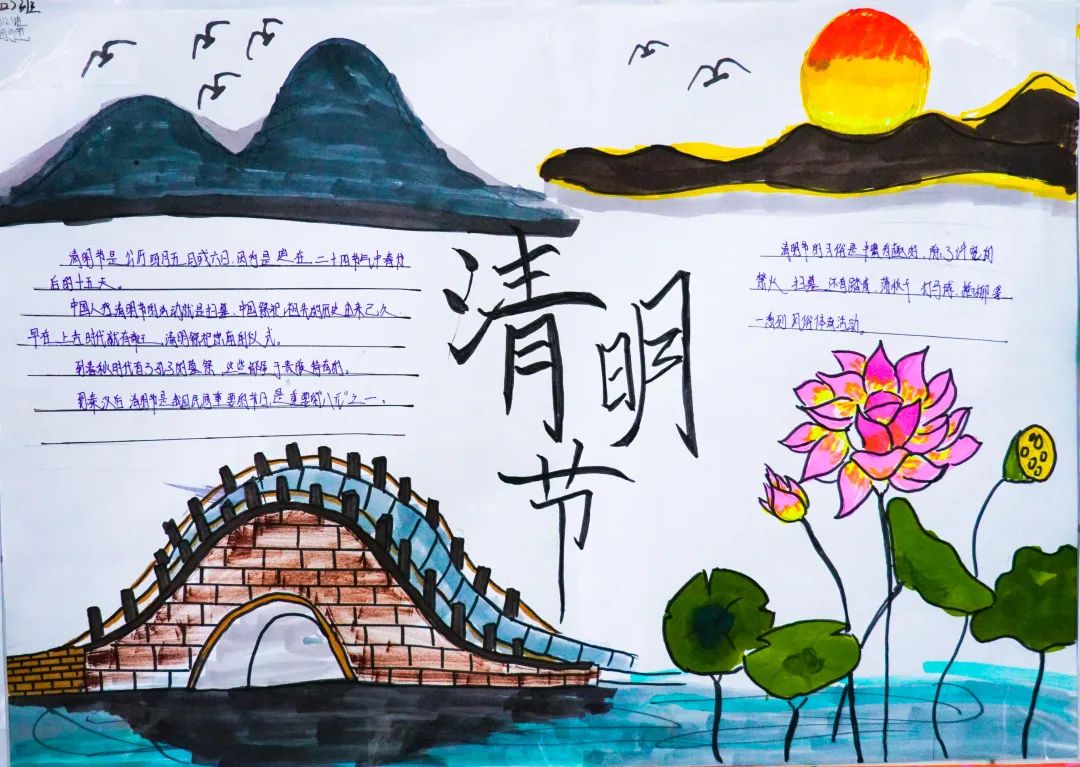 班
清明节是公历四月五日或六日,因为是 在 二十四节气中春分
后的十五天。
中国人过清明节的活动就是扫墓,中国祭祀祖先的历史由来已久
早在上古时代就有 清明祭祀 仪式。
到春秋时代有了 的墓祭,这些都 于贵族特有的。
到秦汉后清明节是我国民间重要的节日,是重要的"八节"之一。
清明节
清明节的习俗是丰富有趣的,除了讲究的
禁火、扫墓 还有踏青 荡秋千 打马球 插柳等
一系列风俗体育活动。